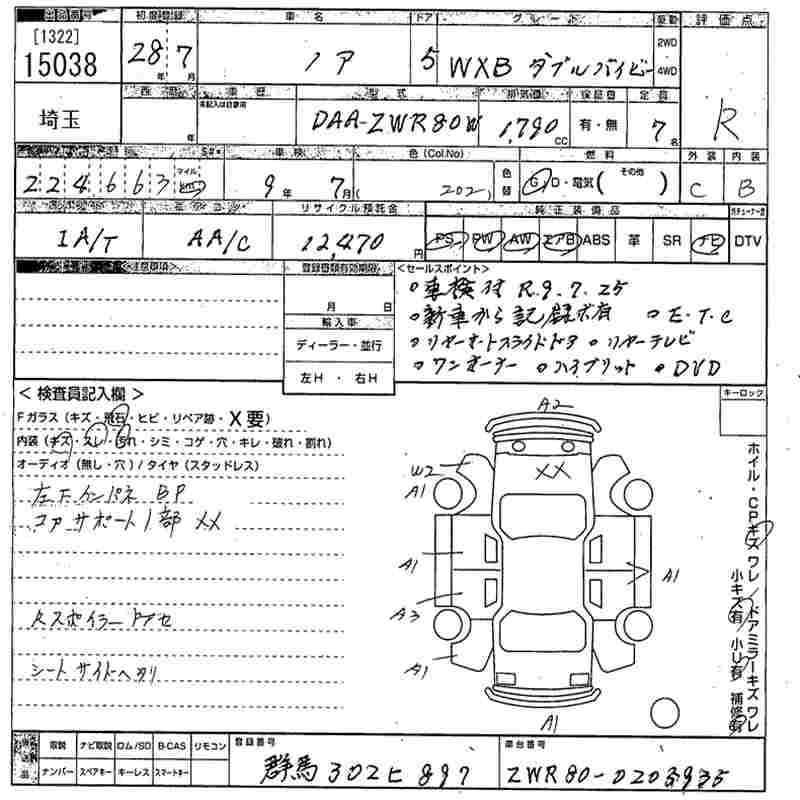 出品番号 初度登録 車名 ドア グレード 駆動 評価点
[1322]
15038
28年 7月 ノア 5 WXB ダブルバイビー 2WD 4WD
R
埼玉
車歴 型式 排気量 保証書 定員
未記入は自家用
DAA-ZWR80W 1,790cc 有・無 7名
車検 色(Col.No) 色替 燃料 外装 内装
224663 マイル km 9年 7月 ( 202 ) G・D・電気 ( その他 ) C B
リサイクル預託金 純正装備品
IA/T AA/C 12,470円 PS PW AW エアB ABS 革 SR ナビ DTV
<注意事項> 登録書類有効期限 <セールスポイント>
月 日
輸入車
ディーラー・並行
左H ・ 右H
○車検付 R.9.7.25
○新車から記録ボ有 ○E.T.C
○リヤーオートスライドドア ○リヤーテレビ
○ワンオーナー ○ハイブリット ○DVD
<検査員記入欄> キーロック
Fガラス(キズ・飛石・ヒビ・リペア跡・X要)
内装(キズ・スレ・汚れ・シミ・コゲ・穴・キレ・破れ・割れ)
オーディオ(無し・穴)/タイヤ(スタッドレス)
左F インパネ BP
コアサポート1部 XX
スポイラー
シート サイドヘタリ
A2
XX
W2
A1
A1
A1
A3
A1
A1
ホイル・CPキズ ワレ/ドアミラーキズ ワレ
小キズ有/小U有 補修有
取説 ナビ取説 ロム/SD B-CAS リモコン 登録番号 車台番号
ナンバー スペアキー キーレス スマートキー
群馬 302 ヒ 897
ZWR80-0205935